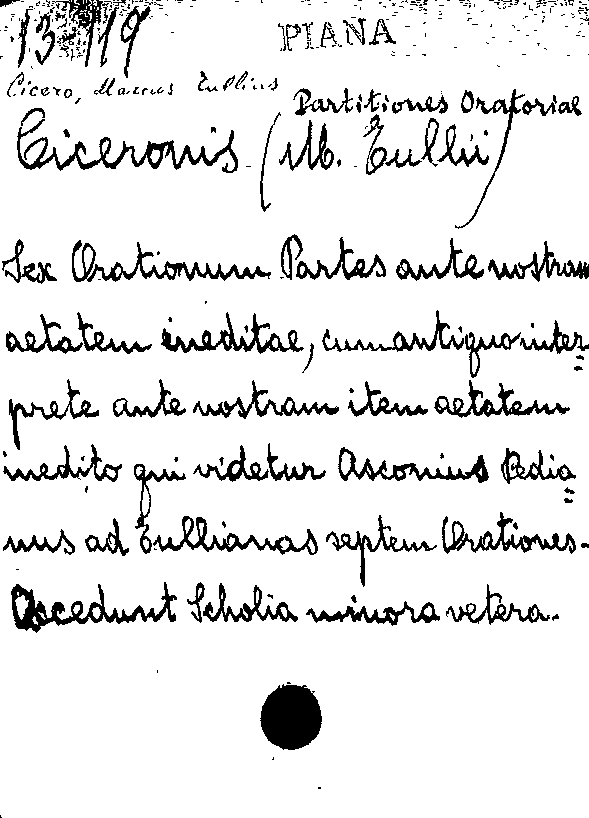 13-119 PIANA
Cicero, Marcus Tullius
Partitiones Oratoriae
Ciceronis (M. Tullii)
Sex Orationum Partes ante nostram
aetatem ineditae, cum antiquo inter=
prete ante nostram item aetatem
inedito qui videtur Asconius Pedia=
nus ad Tullianas septem Orationes.
Accedunt Scholia minora vetera.